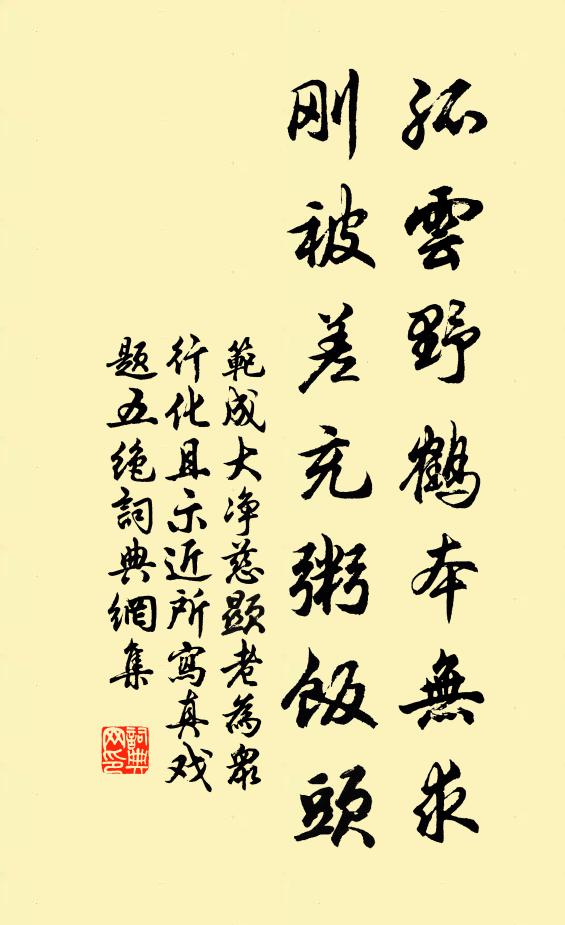 孤雲野鶴本無求
刚被差充粥飯頭
範成大净慈顕老為眾
行化且示近所寫真戏
题五绝詞典網集
詞典
网印